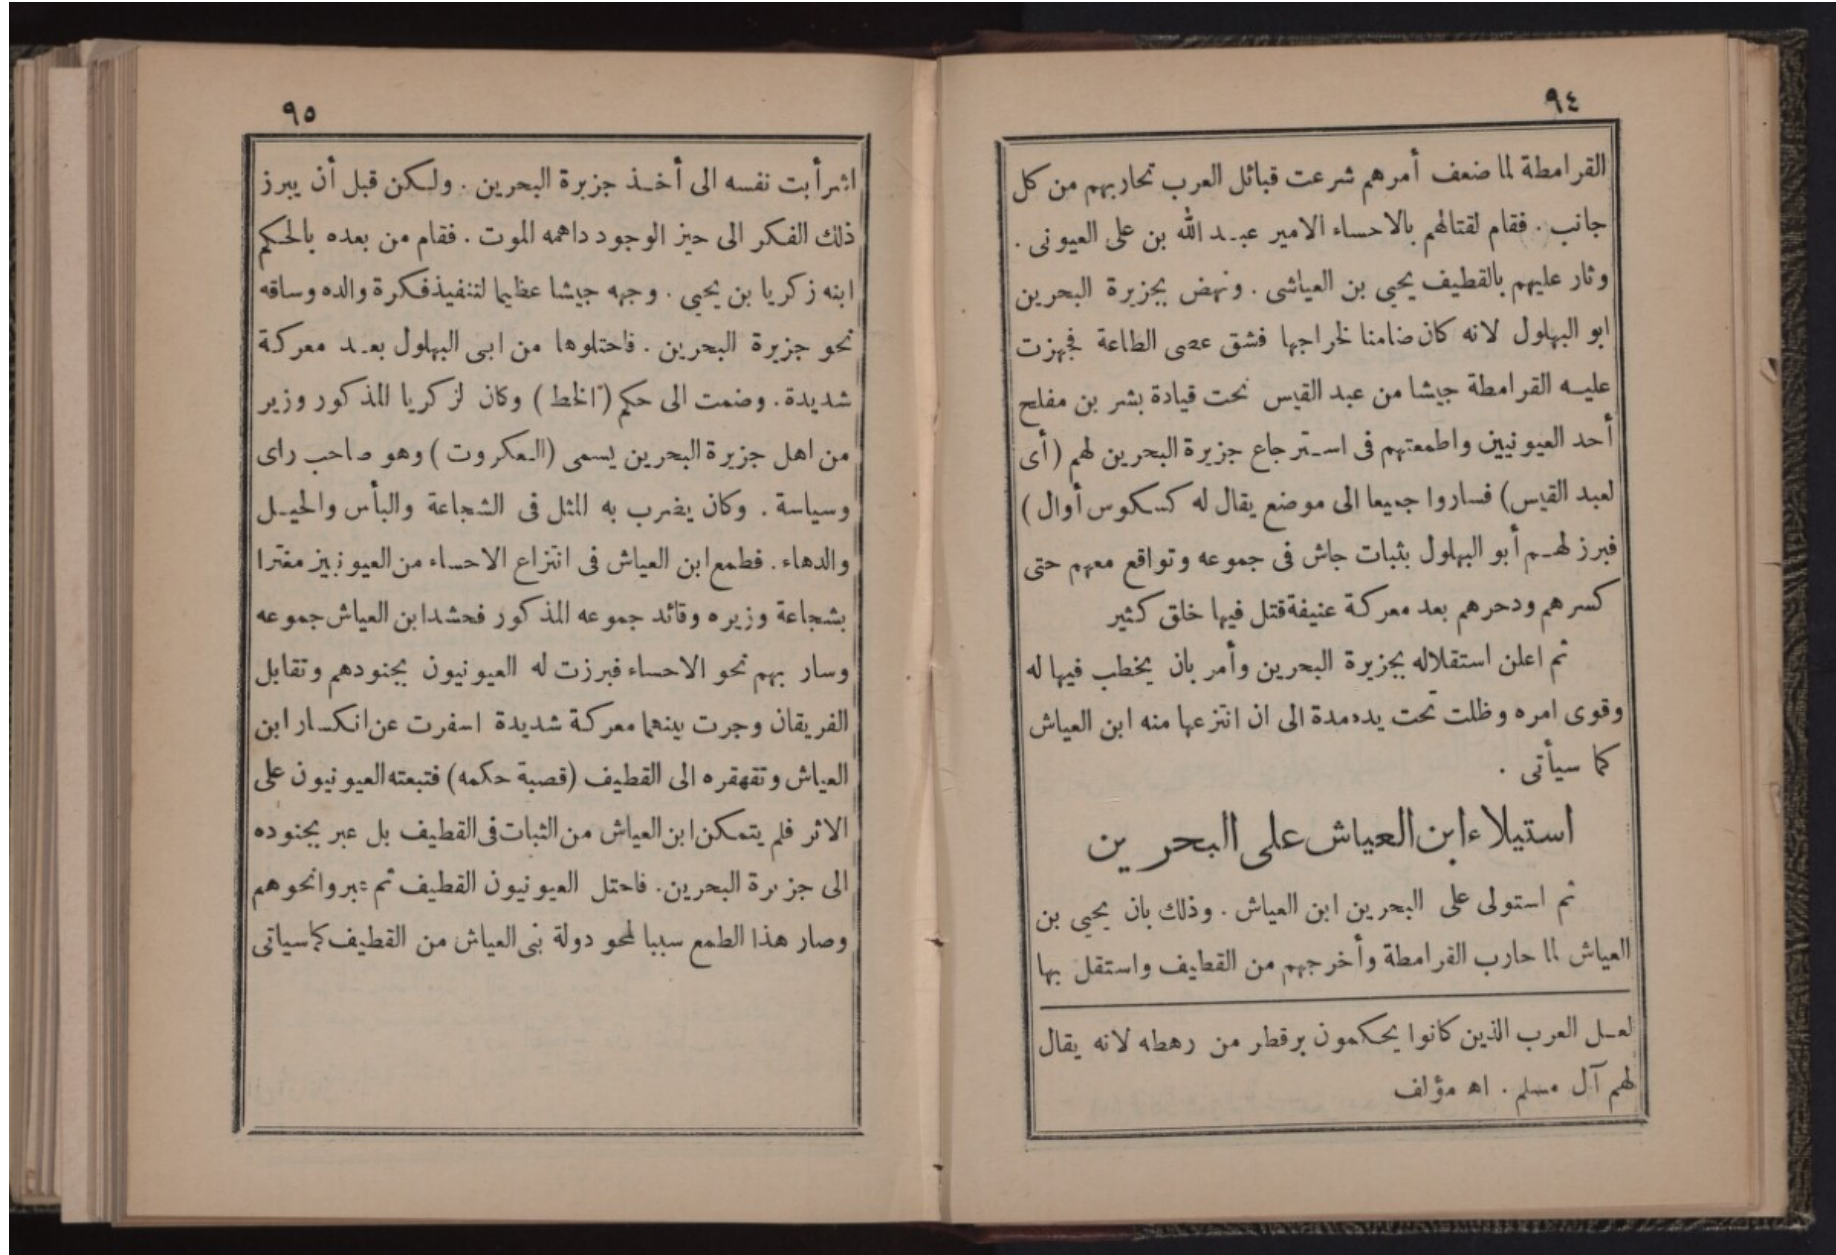 ٩٤
القرامطة لما ضعف أمرهم شرعت قبائل العرب تحاربهم من كل
جانب . فقام لقتالهم بالاحساء الامير عبد الله بن على العيونى .
وثار عليهم بالقطيف يحيى بن العياشى . ونهض بجزيرة البحرين
ابو البهلول لانه كان ضامنا لخراجها فشق عصى الطاعة فجهزت
عليه القرامطة جيشا من عبد القيس تحت قيادة بشر بن مفلح
أحد العيونيين واطمعتهم فى استرجاع جزيرة البحرين لهم (أى
لعبد القيس) فساروا جميعا الى موضع يقال له كسكوس أوال )
فبرز لهم أبو البهلول بثبات جاش فى جموعه وتواقع معهم حتى
كسرهم ودحرهم بعد معركة عنيفة قتل فيها خلق كثير
ثم اعلن استقلاله بجزيرة البحرين وأمر بان يخطب فيها له
وقوى امره وظلت تحت يده مدة الى ان انتزعها منه ابن العياش
كما سيأتى .
استيلاء ابن العياش على البحرين
ثم استولى على البحرين ابن العياش . وذلك بان يحيى بن
العياش لما حارب القرامطة وأخرجهم من القطيف واستقل بها
لعل العرب الذين كانوا يحكمون بر قطر من رهطه لانه يقال
لهم آل مسلم . اه مؤلف
٩٥
اشرأبت نفسه الى أخذ جزيرة البحرين . ولكن قبل أن يبرز
ذلك الفكر الى حيز الوجود داهمه الموت . فقام من بعده بالحكم
ابنه زكريا بن يحيى . وجهه جيشا عظيما لتنفيذ فكرة والده وساقه
نحو جزيرة البحرين . فاحتلوها من ابى البهلول بعد معركة
شديدة . وضمت الى حكم (الخط) وكان لزكريا المذكور وزير
من اهل جزيرة البحرين يسمى (العكروت) وهو صاحب راى
وسياسة . وكان يضرب به المثل فى الشجاعة والبأس والحيل
والدهاء . فطمع ابن العياش فى انتزاع الاحساء من العيونيين مغترا
بشجاعة وزيره وقائد جموعه المذكور فحشد ابن العياش جموعه
وسار بهم نحو الاحساء فبرزت له العيونيون بجنودهم وتقابل
الفريقان وجرت بينهما معركة شديدة اسفرت عن انكسار ابن
العياش وتقهقره الى القطيف (قصبة حكمه) فتبعته العيونيون على
الاثر فلم يتمكن ابن العياش من الثبات فى القطيف بل عبر بجنوده
الى جزيرة البحرين . فاحتل العيونيون القطيف ثم عبروا نحوهم
وصار هذا الطمع سببا لمحو دولة بنى العياش من القطيف كما سياتى